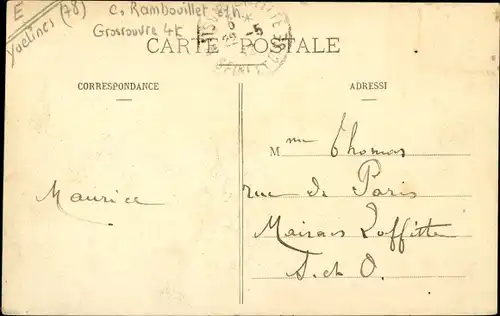 E
Yvelines (78) C. Rambouillet 27k
Grosrouvre 4k
CARTE POSTALE
CORRESPONDANCE
ADRESSE
Mme Thomas
rue de Paris
Maisons Laffitte
S. et O.
Maurice